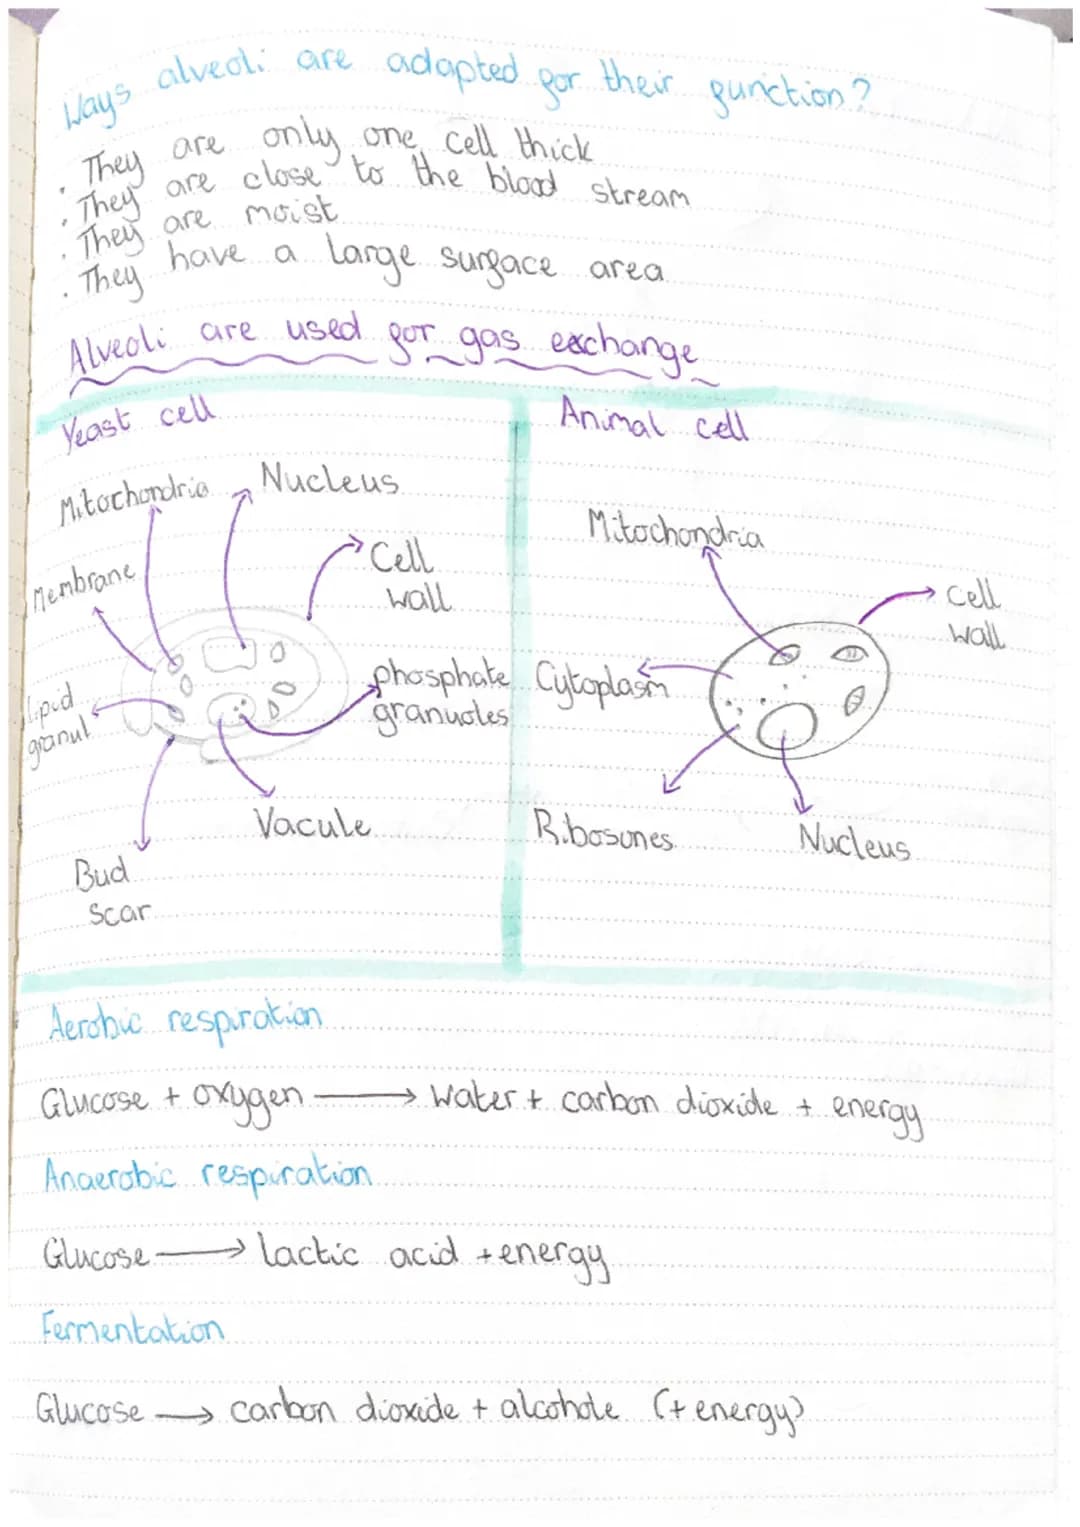 Ways alveoli are adapted for their function?
. They are only one cell thick
. They are close to the blood stream
. They are moist
. They have a large surface area
Alveoli are used for gas exchange
Yeast cell
Mitochondria
Nucleus
Membrane
Cell
wall
phosphate
granuoles
Lipid
granul
Vacule
Bud
scar
Animal cell
Mitochondria
cell
wall
Cytoplasm
Ribosones
Nucleus
Aerobic respiration
Glucose + oxygen → water + carbon dioxide + energy
Anaerobic respiration
Glucose → lactic acid + energy
Fermentation
Glucose → carbon dioxide + alcohole (+ energy)